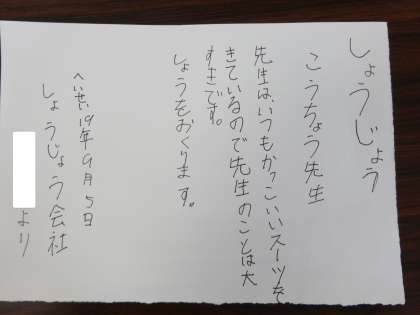 しょうじょう
こうちょう先生
先生は、いつもかっこいいスーツを
きているので先生のことは大
すきです。
しょうをおくります。
へいせい19年9月5日
しょうじょう会社
より